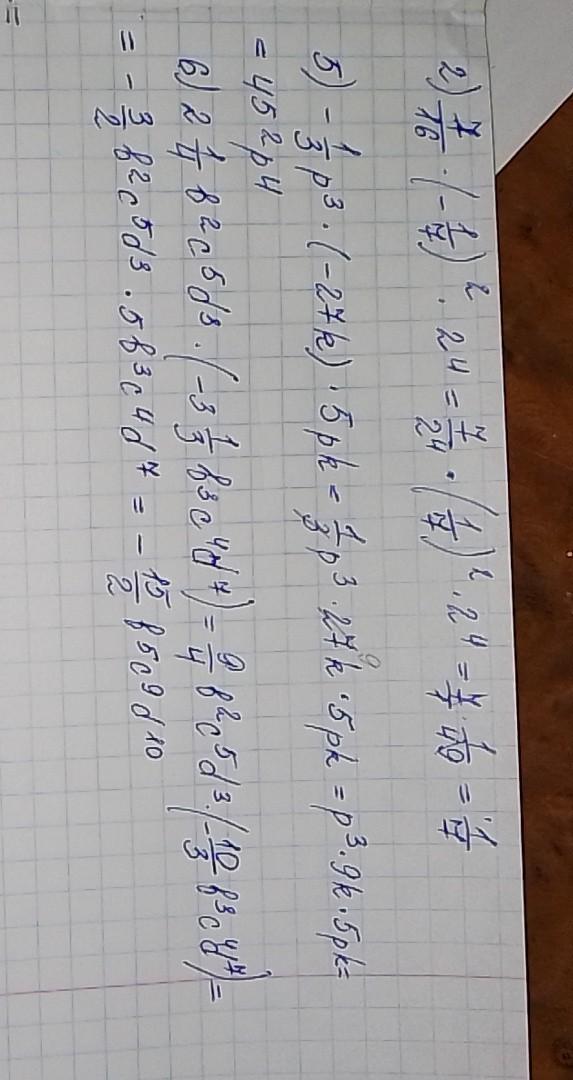 2) 7/16 · (-1/7)² · 2⁴ = 7/2⁴ · (1/7)² · 2⁴ = 7/1 · 1/49 = 1/7
5) -1/3 p³ · (-27k) · 5pk = 1/3 p³ · 27k · 5pk = p³ · 9k · 5pk =
= 45 ²p⁴
6) 2 1/4 b²c⁵d³ · (-3 1/3 b³c⁴d⁷) = 9/4 b²c⁵d³ · (-10/3 b³c⁴d⁷) =
= - 3/2 b²c⁵d³ · 5b³c⁴d⁷ = - 15/2 b⁵c⁹d¹⁰
=